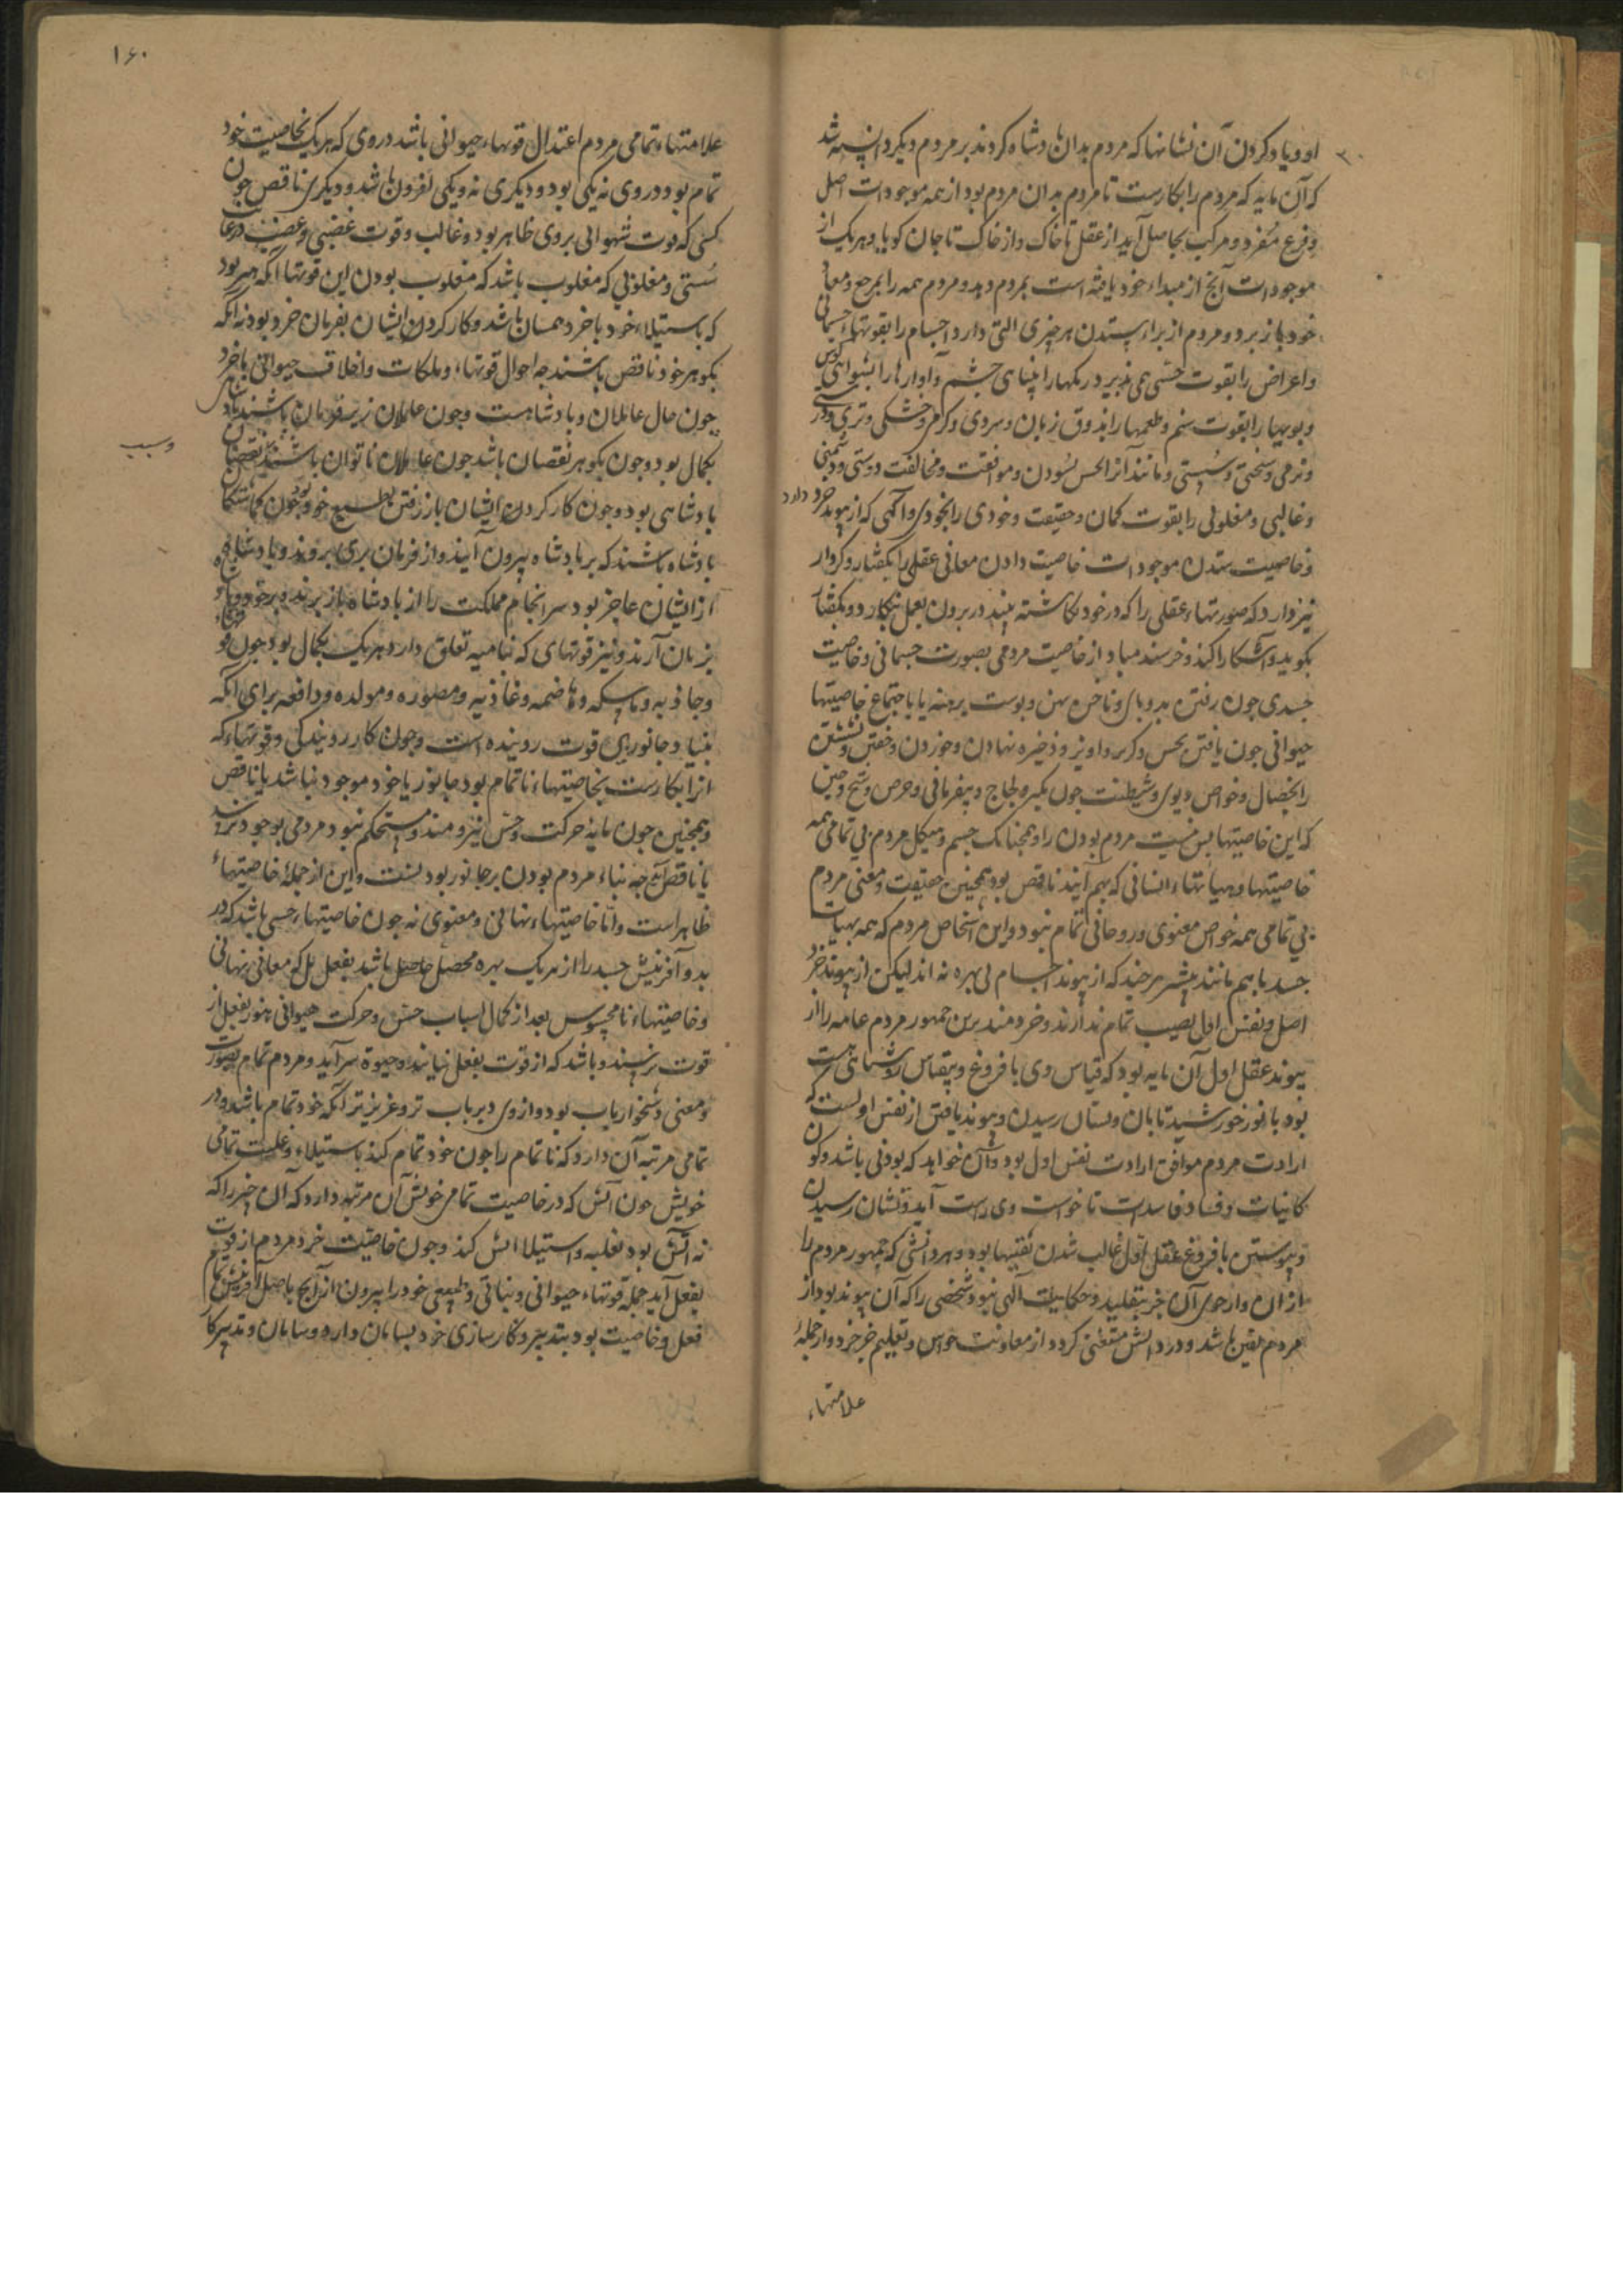 او و یاد کردن آن نشانها که مردم بدان پادشاه کردند بر مردم دیگر دانسته شد
که آن مایه که مردم را بکارست تا مردم بدان مردم بود از همه موجودات اصل
و فرع مفرد و مرکب بحاصل آید از عقل تا خاک و از خاک تا جان کویا و هر یک از
موجودات آنج از مبداء خود یافته است بمردم دهد و مردم همه را بمرجع و معاد
خود باز برد و مردم از براء ستدن هر چیزی التی دارد اجسام را بقوتهاء جسمانی
و اعراض را بقوت حسّی همی پذیرد رنکها را ببینایی چشم و آوازها را بشنوایی کوش
و بویها را بقوت شم و طعمها را بذوق زبان و سردی و کرمی و خشکی و تری و درشتی
و نرمی و سختی و سستی و مانند آنرا بحس بسودن و موافقت و مخالفت و دوستی و دشمنی
و غالبی و مغلوبی را بقوت کمان و حقیقت و خودی را بخودی و آکهی که از پیوند خرد دارد
و خاصیت ستدن موجودات خاصیت دادن معانی عقلی را بکفتار و کردار
نیز دارد که صورتهاء عقلی را که در خود نکاشته بیند در برون بعمل بنکارد و بکفتار
بکوید و آشکارا کند و خرسند مباد از خاصیت مردمی بصورت جسمانی و خاصیت
جسدی چون رفتن بدو پای و ناخن پهن و پوست برهنه یا باجتماع خاصیتها
حیوانی چون یافتن بحس و کر و اویز و ذخیره نهادن و خوردن و خفتن و نشستن
یا بخصال و خواص دیوی و شیطنت چون تکبر و لجاج و بیفرمانی و حرص و شح و جبن
که این خاصیتها بس نیست مردم بودن را و همچنانک جسم و هیکل مردم بی تمامی همه
خاصیتها و هیاتهاء انسانی که بهم آیند ناقص بود همچنین حقیقت و معنی مردم
بی تمامی همه خواص معنوی و روحانی تمام نبود و این اشخاص مردم که همه بهیات
جسد با هم مانند بیشتر هر چند که از پیوند اجسام بی بهره نه اند لیکن از پیوند خرد
اصل و نفس اول نصیب تمام ندارند و خردمند برین جمهور مردم عامه را از
پیوند عقل اول آن مایه بود که قیاس وی با فروغ و بقیاس روشنایی
بود با نور خورشید تابان و نشان رسیدن و پیوند یافتن از نفس اولست که
ارادت مردم موافق ارادت نفس اول بود و آن خواهد که بودنی باشد و کون
کاینات و فساد فاسدات تا خواست وی راست آید و نشان رسیدن
و پیوستن با فروغ عقل اول غالب شدن یقینها بود و هر دانشی که جمهور مردم را
از ان وارجوی آن جز بتقلید و حکایات آلهی نبود شخصی را که آن پیوند بود از
مردم یقین باشد و در دانش مستغنی کردد از معاونت حواس و تعلیم جز خرد و از جملهٔ
علامتهاء
۱۶۰
علامتهاء تمامی مردم اعتدال قوتهاء حیوانی باشد در وی که هر یک بخاصیت خود
تمام بود در وی نه یکی بود و دیکری نه و یکی افزون باشد و دیکری ناقص چون
کسی که قوت شهوانی بر وی ظاهر بود و غالب و قوت غضبی و غضب در غایت
سستی و مغلوبی که مغلوب باشد که مغلوب بودن این قوتها آنکه هنر بود
که باستیلاء خود با خرد همسان باشد و کار کردن ایشان بفرمان خرد بود نه آنکه
بکوهر خود ناقص باشند چه احوال قوتهاء و ملکات و اخلاق حیوانی با خرد
چون حال عاملان و پادشاهست و چون عاملان زیر فرمان باشند پادشاهی
بکمال بود و چون بکوهر نقصان باشد چون عاملان ناتوان باشند نقصان
پادشاهی بود و چون کار کردن ایشان باز رفتن بطبع خود بود چون کماشتکان
پادشاه باشند که بر پادشاه بیرون آیند و از فرمان بری بروند و پادشاه
از ایشان عاجز بود سرانجام مملکت را از پادشاه باز برند و بر خود
بزیان آرند و نیز قوتهای که بنامیه تعلق دارد هر یک بکمال بود چون
و جاذبه و ماسکه و هاضمه و غاذیه و مصوره و مولده و دافعه برای آنکه
بنیاد جانوری قوت رویینده است و چون کار رویندکی و قوتهاء که
انرا بکارست بخاصیتهاء ناتمام بود جانور یا خود موجود نباشد یا ناقص
و همچنین چون مایهٔ حرکت و حس نیرومند و مستحکم نبود مردمی بوجود نرسد
یا ناقص آید چه بناء مردم بودن بر جانور بودنست و این از جملهٔ خاصیتهاء
ظاهر است و امّا خاصیتهاء نهانی و معنوی نه چون خاصیتهاء حسی باشد که در
بدو آفرینش جسد را از هر یک بهره محصل حاصل باشد بفعل بل که معانی نهانی
و خاصیتهاء نامحسوس بعد از کمال اسباب حس و حرکت حیوانی هنوز بفعل از
قوت نرسند و باشد که از قوت بفعل نیایند و حیوة سر آید و مردم تمام بصورت
و معنی دشخوار یاب بود و از وی دیریاب تر و عزیزتر آنکه خود تمام باشد و در
تمامی مرتبه آن دارد که ناتمام را چون خود تمام کند باستیلاء و غلبت تمامی
خویش چون آتش که در خاصیت تمامی خویش آن مرتبه دارد که آن چیز را که
نه آتش بود بغلبه و استیلا آتش کند و چون خاصیت خرد مردم از قوت
بفعل آید جمله قوتهاء حیوانی و نباتی و طبیعی خود را بیرون از آنج باصل آفرینش تمام
فعل و خاصیت بود بتدبیر و کارسازی خود بسامان دارد و سامان و تدبیر کار
و سبب